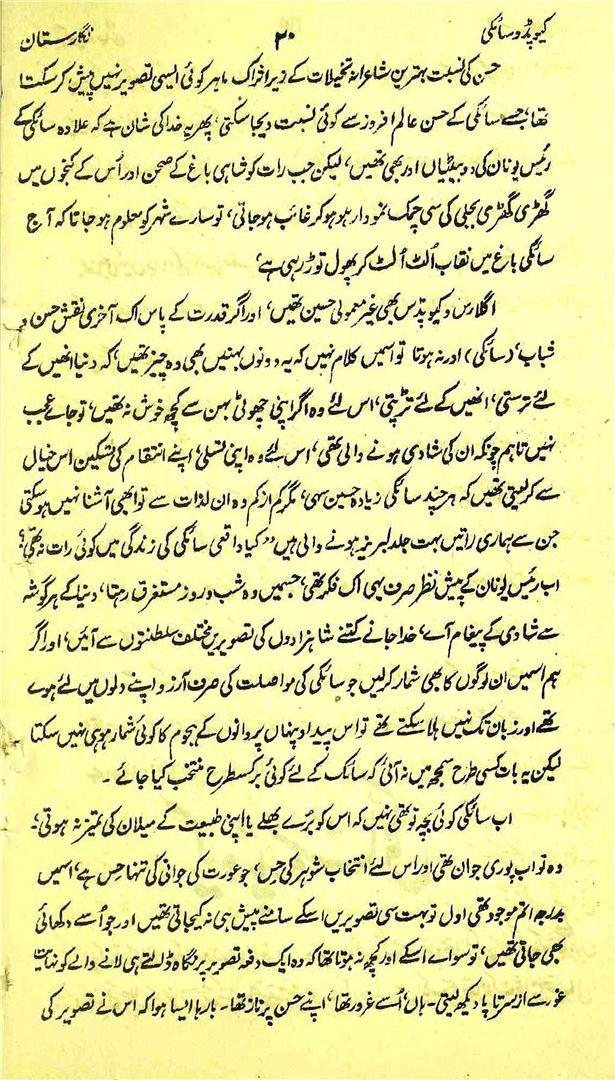 کیوپڈ و سائکی ۲۰ نگارستان
حسن کی نسبت بہترین شاعرانہ تخیلات کے زیر اثر اک ماہر کوئی ایسی تصویر نہیں پیش کر سکتا
تھا جسے سائکی کے حسن عالم افروز سے کوئی نسبت دیجا سکتی، پھر یہ خدا کی شان ہے کہ علاوہ سائکی کے
رئیس یونان کی دو بیٹیاں اور بھی تھیں، لیکن جب رات کو شاہی باغ کے صحن اور اُس کے کنجوں میں
گھڑی گھڑی بجلی کی سی چمک نمودار ہو ہو کر غائب ہو جاتی، تو سارے شہر کو معلوم ہو جاتا کہ آج
سائکی باغ میں نقاب اُلٹ اُلٹ کر پھول توڑ رہی ہے،
اگلارس و کیوپڈس بھی غیر معمولی حسین تھیں، اور اگر قدرت کے پاس اک آخری نقش حسن و
شباب، (سائکی) اور نہ ہوتا تو اسمیں کلام نہیں کہ یہ دونوں بہنیں بھی وہ چیز تھیں، کہ دنیا انھیں کے
لئے ترستی، انھیں کے لئے تڑپتی، اس لئے وہ اگر اپنی چھوٹی بہن سے کچھ خوش نہ تھیں، تو جائے عجب
نہیں تاہم چونکہ ان کی شادی ہونے والی تھی، اس لئے وہ اپنی تسلی، اپنے انتقام کی تسکین اس خیال
سے کر لیتی تھیں کہ ہر چند سائکی زیادہ حسین سہی، مگر کم از کم وہ ان لذات سے تو ابھی آشنا نہیں ہو سکتی
جن سے ہماری راتیں بہت جلد لبریز ہونے والی ہیں" کیا واقعی سائکی کی زندگی میں کوئی رات نہ تھی؟
اب رئیس یونان کے پیش نظر صرف یہی اک فکر تھی، جسمیں وہ شب و روز مستغرق رہتا، دنیا کے ہر گوشہ
سے شادی کے پیغام آے، خدا جانے کتنے شاہزادوں کی تصویریں مختلف سلطنتوں سے آئیں، اور اگر
ہم اسمیں ان لوگوں کا بھی شمار کر لیں جو سائکی کی مواصلت کی صرف آرزو اپنے دلوں میں لئے ہوے
تھے اور زبان تک نہیں ہلا سکتے تھے تو اس پیدا و پنہاں پروانوں کے ہجوم کا کوئی شمار ہو ہی نہیں سکتا
لیکن یہ بات کسی طرح سمجھ میں نہ آئی کہ سائک کے لئے کوئی بر کسطرح منتخب کیا جائے ۔
اب سائکی کوئی بچہ تو تھی نہیں کہ اس کو بُرے بھلے یا اپنی طبیعت کے میلان کی تمیز نہ ہوتی،
وہ تو اب پوری جوان تھی اور اس لئے انتخاب شوہر کی حِس، جو عورت کی جوانی کی تنہا حِس ہے، اسمیں
بدرجہ اتم موجود تھی اول تو بہت سی تصویریں اسکے سامنے پیش ہی نہ کیجاتی تھیں اور جو اُسے دکھائی
بھی جاتی تھیں، تو سواے اسکے اور کچھ نہ ہوتا تھا کہ وہ ایک دفعہ تصویر پر نگاہ ڈالتے ہی لانے والے کو نہایت
غور سے از سر تا پا دیکھ لیتی۔ ہاں، اُسے غرور تھا، اپنے حسن پر ناز تھا۔ بارہا ایسا ہوا کہ اس نے تصویر کی